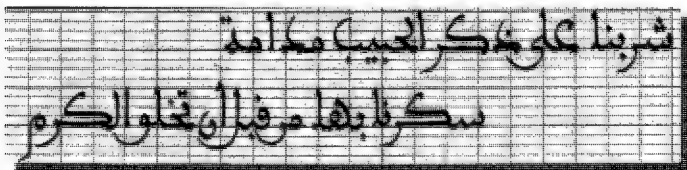 شربنا على ذكر الحبيب مدامة
سكرنا بها من قبل أن تخلق الكرم